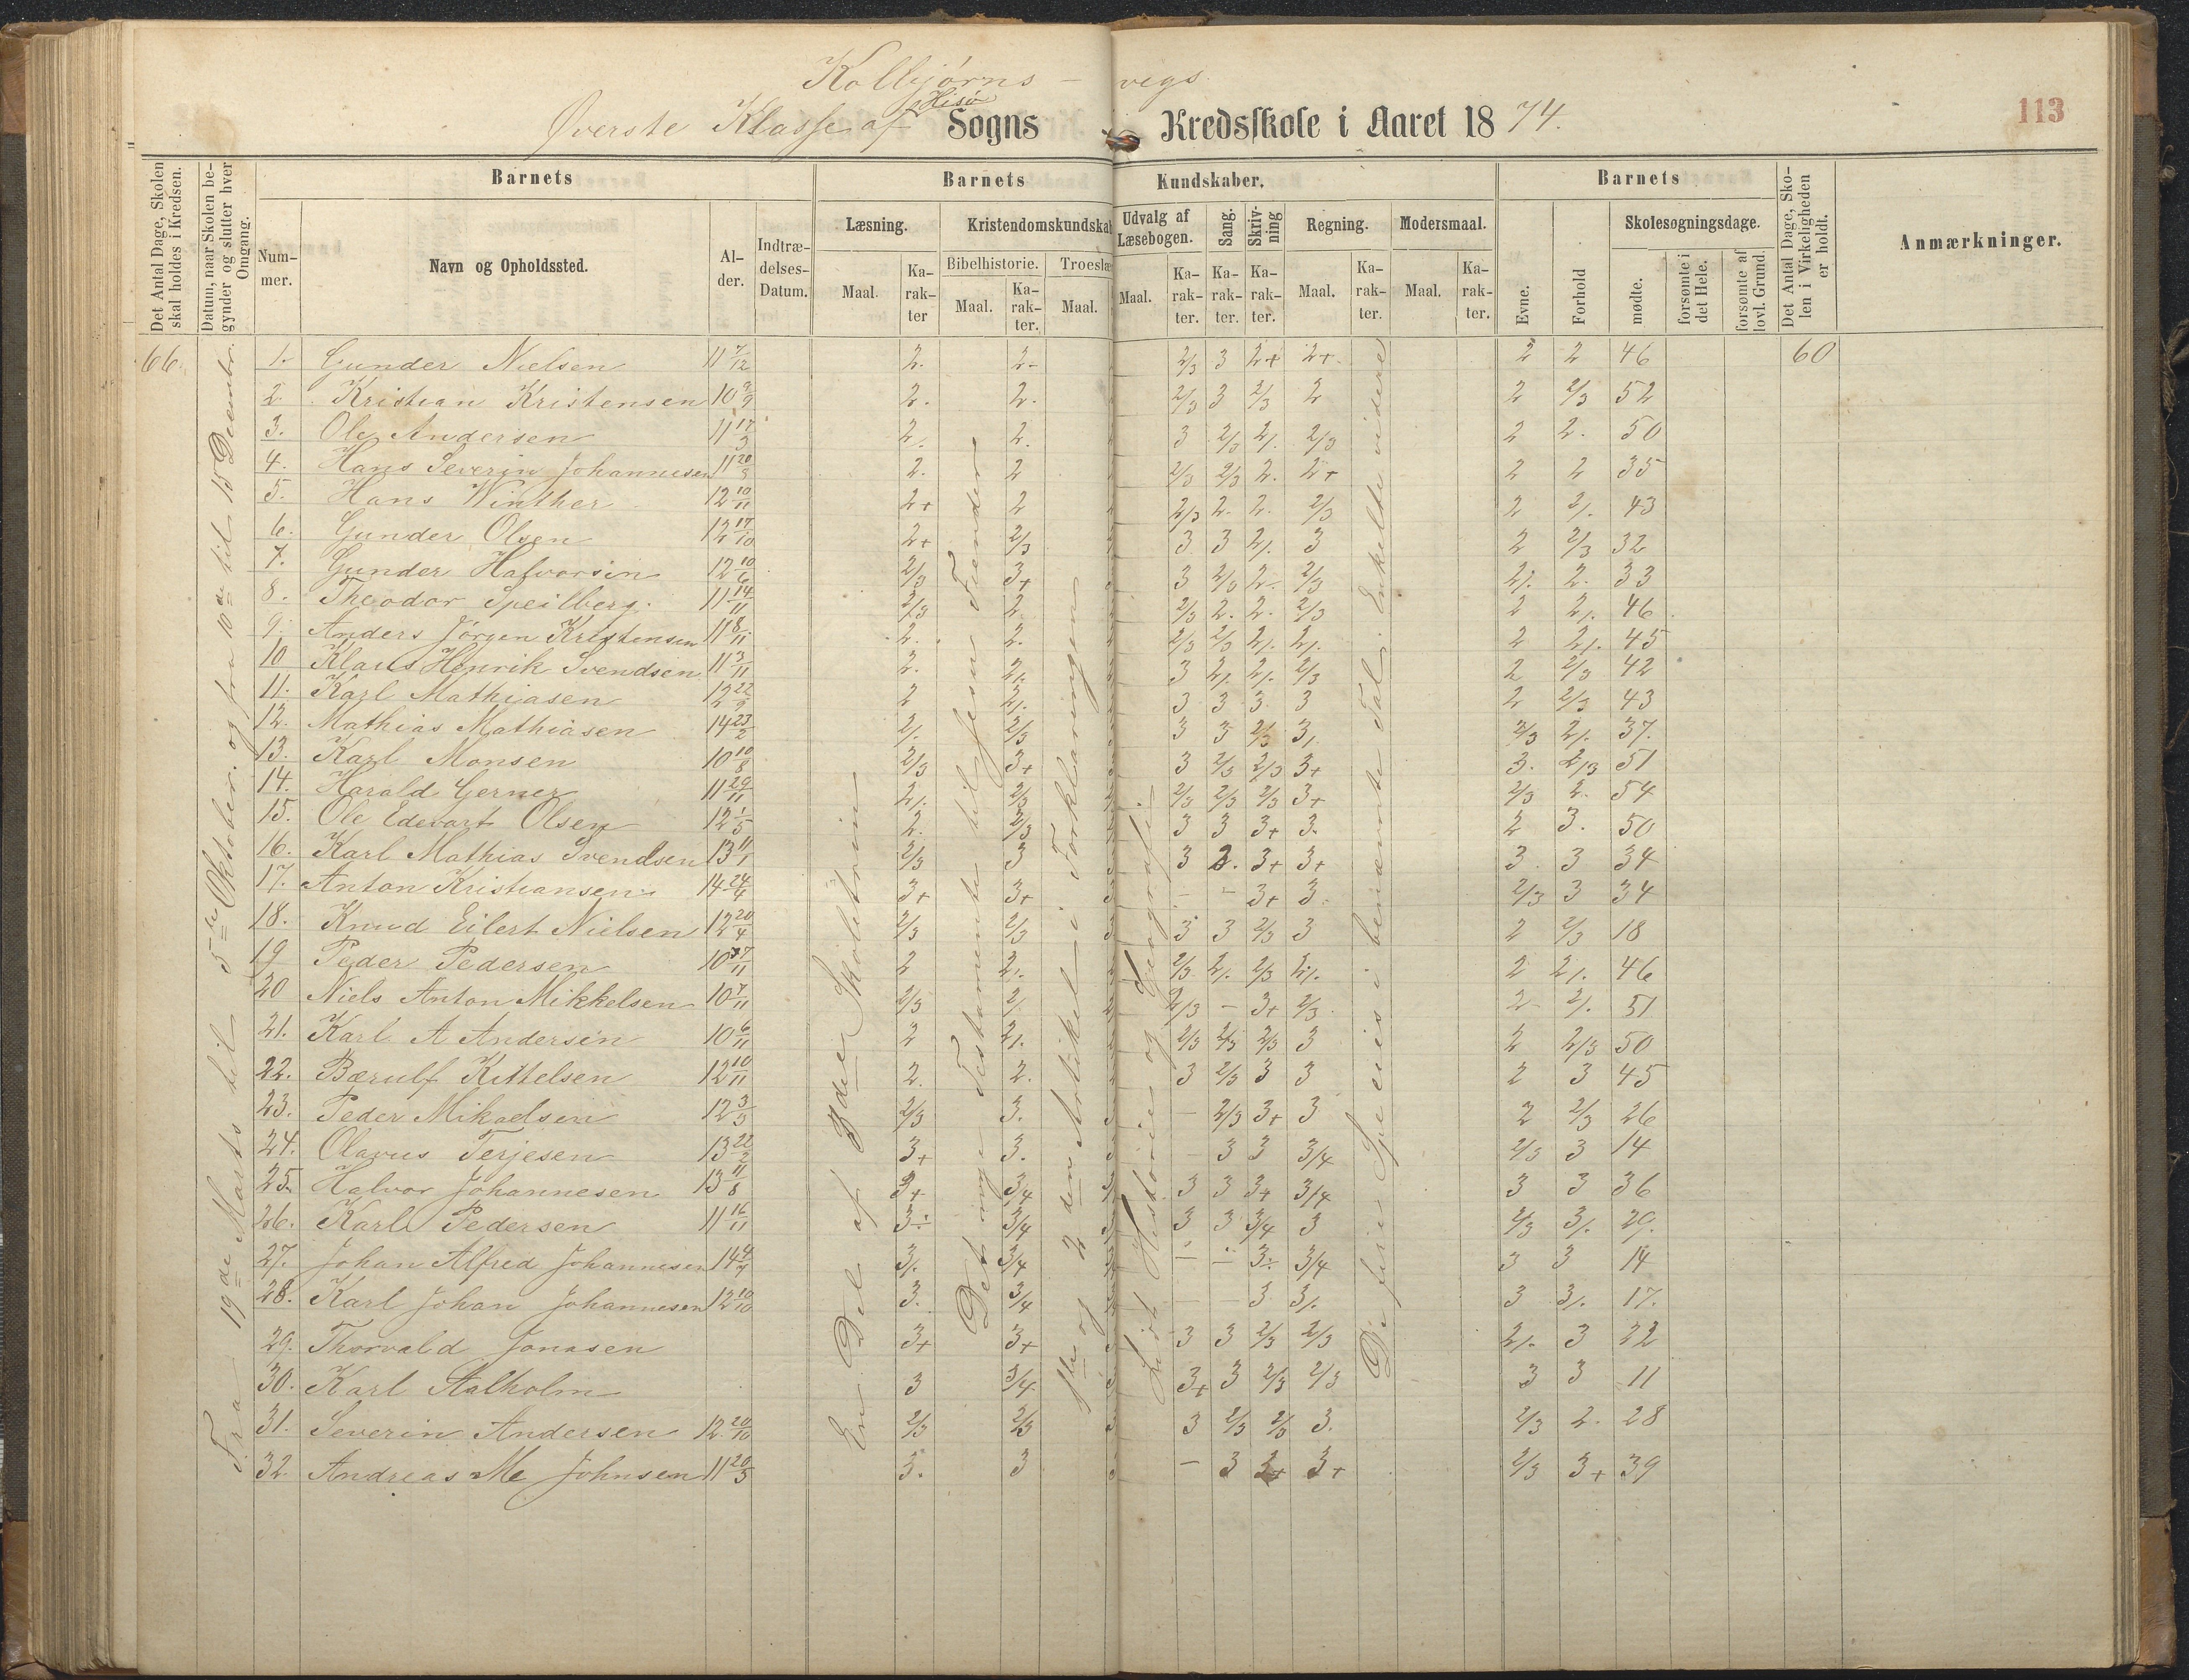 Kolbjørns - vegs
Hisø
Øverste Klasse af Sogns Kredsskole i Aaret 1874.
113
Det Antal Dage, Skolen skal holdes i Kredsen.
Datum, naar Skolen begynder og slutter hver Omgang.
Barnets
Barnets Kundskaber.
Barnets
Det Antal Dage, Skolen i Virkeligheden er holdt.
Anmærkninger.
Nummer.
Navn og Opholdssted.
Alder.
Indtrædelses-Datum.
Læsning.
Kristendomskundskab
Udvalg af Læsebogen.
Sang.
Skrivning
Regning.
Modersmaal.
Evne.
Forhold
Skolesøgningsdage.
Bibelhistorie.
Troeslæ
Maal.
Karakter
Maal.
Karakter.
Maal.
Maal.
Karakter.
Karakter.
Karakter.
Maal.
Karakter.
Maal.
Karakter.
mødte.
forsømte i det Hele.
forsømte af lovl. Grund.
66.
Fra 19de Marts til 5te Oktober og fra 10de til 15 Decembr.
En Del af P. A.
Det nye Testamente til Jesu Fiender
1ste og 2den Artikel i Forklaringen
Lidt Historie og Geografi.
De fire Specieis i benævnte Tal. Enkelte videre
1. Gunder Nielsen 11 7/12 2. 2- 2/3 3 2+ 2+ 2 2 46 60
2. Kristian Kristensen 10 9/9 2. 2. 2/3 3 2/3 2 2 2/3 52
3. Ole Andersen 11 17/3 2. 2. 3 2/3 2/. 2/3 2 2. 50
4. Hans Severin Johannesen 11 20/9 2. 2 2/3 2/3 2. 2+ 2 2 35
5. Hans Winther 12 10/11 2+ 2 2/3 2. 2. 2/3 2 2/. 43
6. Gunder Olsen 12 17/10 2+ 2/3 3 3 2/. 3 2 2/3 32
7. Gunder Halvorsen 12 10/6 2/3 3+ 3 2/3 2. 2/3 2/. 2. 33
8. Theodor Speilberg. 11 14/11 2/3 2. 2/3 2. 2. 2/3 2 2/. 46
9. Anders Jörgen Kristensen 11 8/11 2. 2. 2/3 2/3 2/. 2/. 2 2/. 45
10 Klaus Henrik Svendsen 11 3/11 2. 2/. 3 2/. 2/. 2/3 2 2/3 42
11. Karl Mathiasen 12 22/9 2 2/. 3 3 3 3 2 2/3 43
12. Mathias Mathiasen 14 23/2 2/. 2/3 3 3 2/3 3/. 2/3 2/. 37.
13. Karl Monsen 10 10/8 2/3 3+ 3 2/3 2/3 3+ 3. 2/3 51
14. Harald Gerner 11 29/11 2/. 2/3 2/3 2/3 2/3 3+ 2/3 2. 54
15. Ole Edevart Olsen 12 1/5 2. 2/3 3 3 3+ 3. 2 3. 50
16. Karl Mathias Svendsen 13 11/1 2/3 3 3 2. 3+ 3+ 3. 3 34
17. Anton Kristiansen 14 24/4 3+ 3+ - - 3+ 3. 2/3 3 34
18. Knud Eilert Nielsen 12 20/4 2/3 2/3 3 3 2/3 3 2 2/3 18
19 Peder Pedersen 10 27/11 2 2/. 2/3 2/. 2/3 2/. 2 2/. 46
20 Niels Anton Mikkelsen 10 7/11 2/3 2/ 2/3 - 3+ 2/3 2- 2/. 51
21. Karl A Andersen 10 6/11 2 2/. 2/3 2/3 2/3 3 2 2/3 50
22. Bærulf Kittelsen 12 10/11 2. 2. 3 2/3 3 3 2 3 45
23. Peder Mikaelsen 12 3/3 2/3 3. - 2/3 3+ 3 2 2/3 26
24. Olavus Terjesen 13 22/2 3+ 3. 3 3 3/4 2/3 3 14
25. Halvor Johannesen 13 11/8 3+ 3/4 3 3 3+ 3/4 3 3 36
26. Karl Pedersen 11 16/11 3÷ 3/4 3 3 3/4 3 2/3 3/. 29.
27. Johan Alfred Johannesen 14 4/9 3/. 3/4 - - 3÷ 3/4 3 3 14
28. Karl Johan Johannesen 12 10/10 3. 3/4 - - 3 3/. 3 3/. 17.
29. Thorvald Jonasen 3+ 3+ 3 3 2/3 2/3 2/. 3 32
30. Karl Stalholm 3 3/4 3+ 3 2/3 2/3 3 3 11
31. Severin Andersen 12. 20/10 2/3 2/3 3 2/3 2/3 3. 2/3 2. 28
32. Andreas Me Johnsen 11 20/5 3. 3 - 3 3+ 3+ 2/3 3+ 39